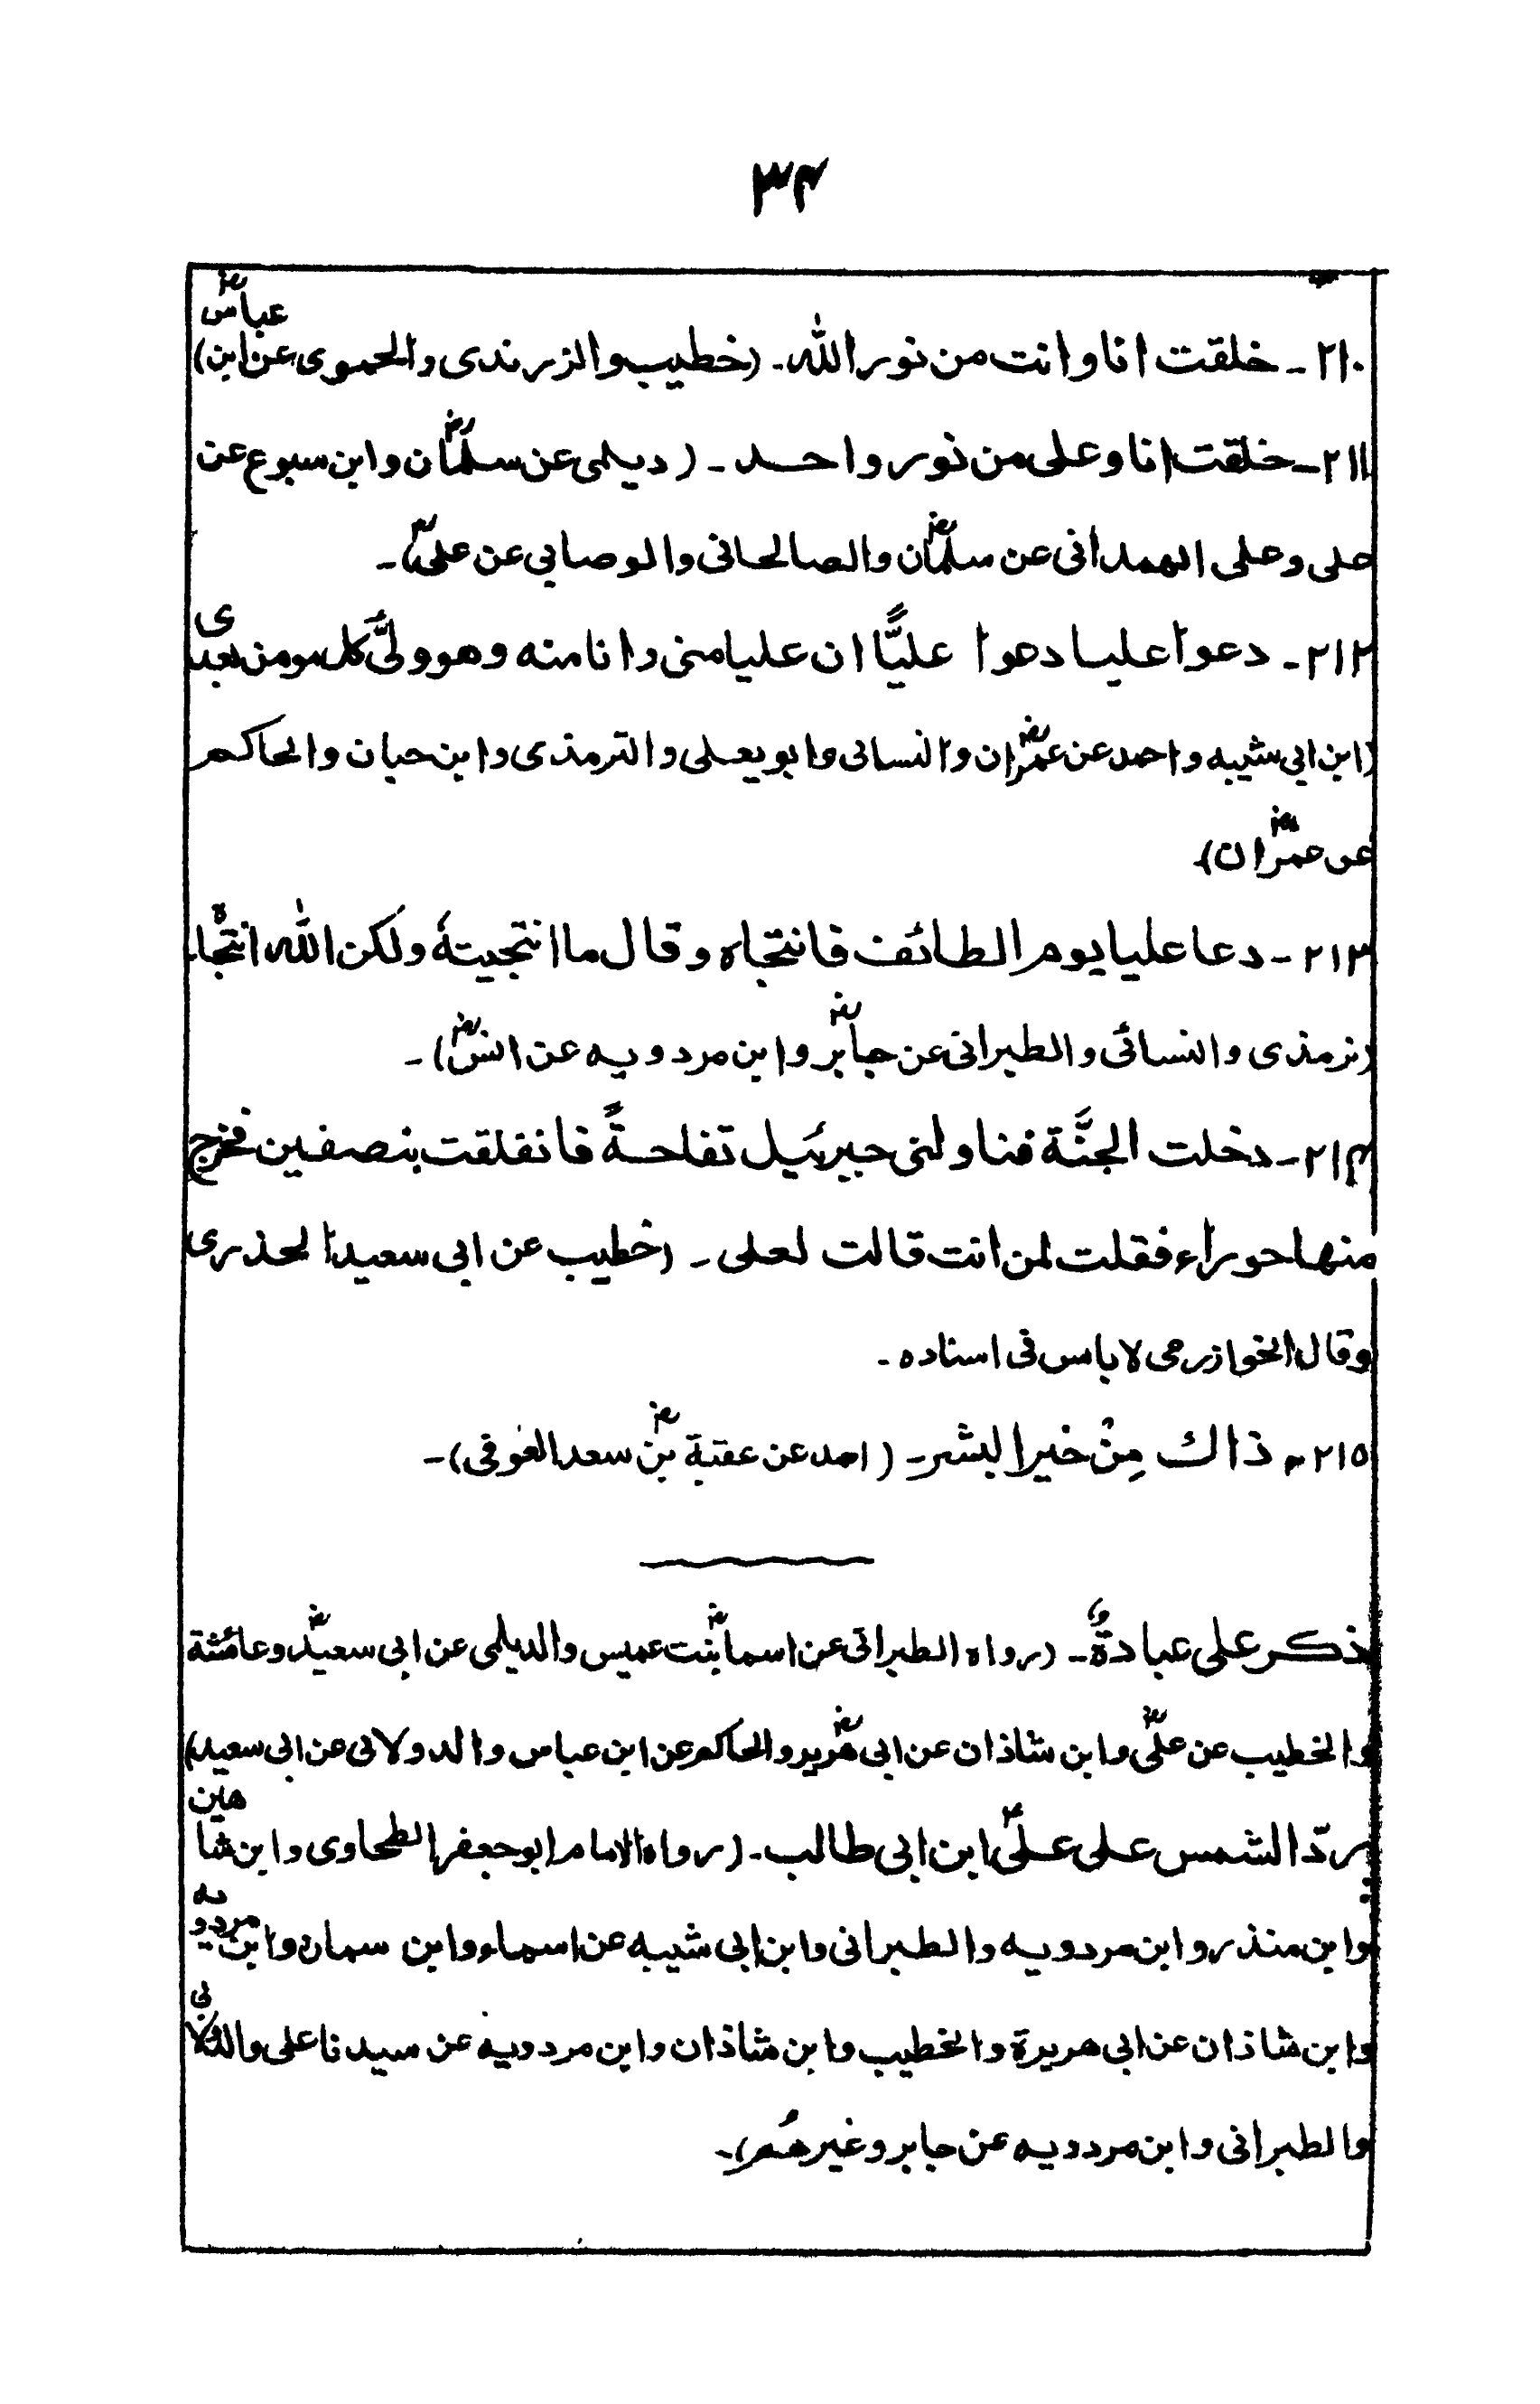 ۳۴
۲۱۰ـ خلقت انا وانت من نور الله۔ (خطیب والزرندی والحموی عن ابن عباسؓ)
۲۱۱ـ خلقت انا وعلی من نور واحد ـ (دیلمی عن سلمانؓ وابن سبوع عن
علی وعلی الهمدانی عن سلمانؓ والصالحانی والوصابی عن علیؓ)ـ
۲۱۲ـ دعوا علیا دعوا علیًّا ان علیا منی وانا منه وهو ولیُّ کل مومن بعدی
(ابن ابی شیبه واحمد عن عمرانؓ والنسائی وابو یعلی والترمذی وابن حبان والحاکم
عن عمرانؓ)
۲۱۳ـ دعا علیا یوم الطائف فانتجاه وقال ما انتجیتهٗ ولکن الله انتجاه
(ترمذی والنسائی والطبرانی عن جابرؓ وابن مردویه عن انسؓ)ـ
۲۱۴ـ دخلت الجنَّة فناولنی جبرئیل تفاحةً فانفلقت بنصفین فخرج
منها حوراء فقلت لمن انت قالت لعلی ـ (خطیب عن ابی سعید الخدری
وقال الخوازرمی لا باس فی اسناده ـ
۲۱۵ـ ذاك مِنْ خیر البشرـ (احمد عن عقبة بنؓ سعد العوفی)ـ
ذکر علی عبادةٌ۔ (رواه الطبرانی عن اسماؓ بنت عمیس والدیلمی عن ابی سعیدؓ وعائشة
والخطیب عن علیؓ وابن شاذان عن ابی هریرؓ والحاکم عن ابن عباس والدولابی عن ابی سعید)
ردّ الشمس علی علیؓ ابن ابی طالب۔ (رواه الامام ابو جعفر الطحاوی وابن شاهین
وابن منذر وابن مردویه والطبرانی وابن ابی شیبه عن اسماء وابن سمان وابن مردویه
وابن شاذان عن ابی هریرة والخطیب وابن شاذان وابن مردویه عن سیدنا علی والدولابی
والطبرانی وابن مردویه عن جابر وغیرهُم)ـ